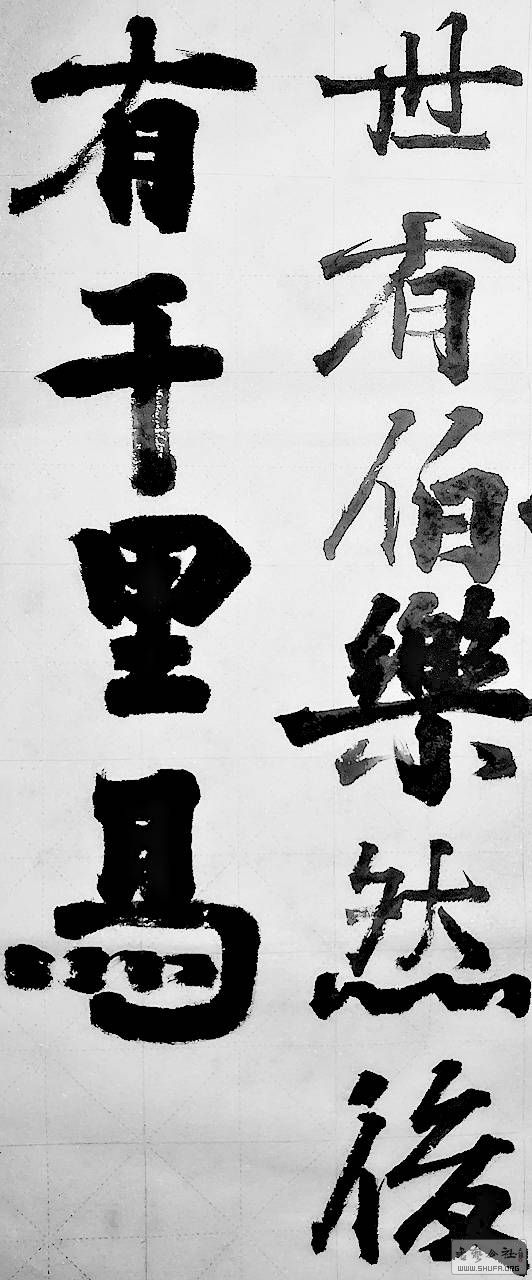 世有伯樂然後
有千里馬
WWW.SHUFA.ORG